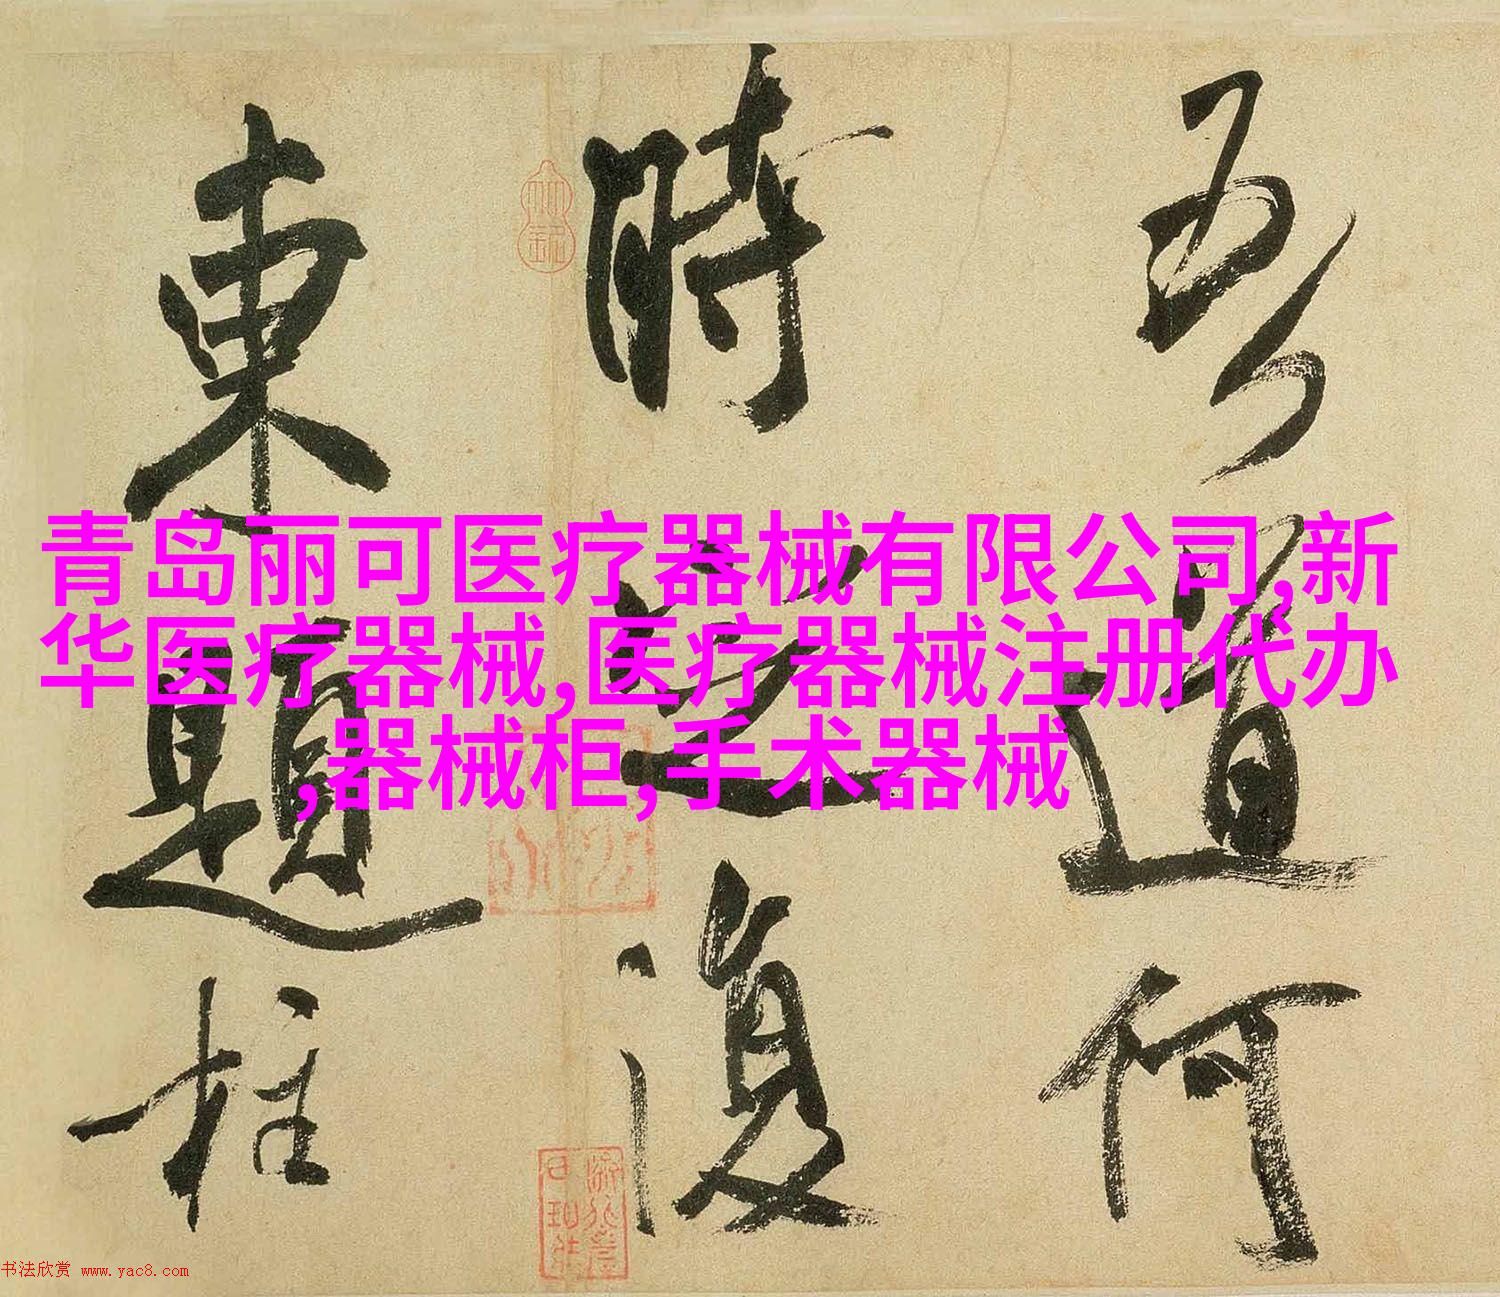 青岛丽可医疗器械有限公司,新
华医疗器械,医疗器械注册代办
,器械柜,手术器械
吾道何
時之復
東題柱
书法欣赏 www.yac8.com